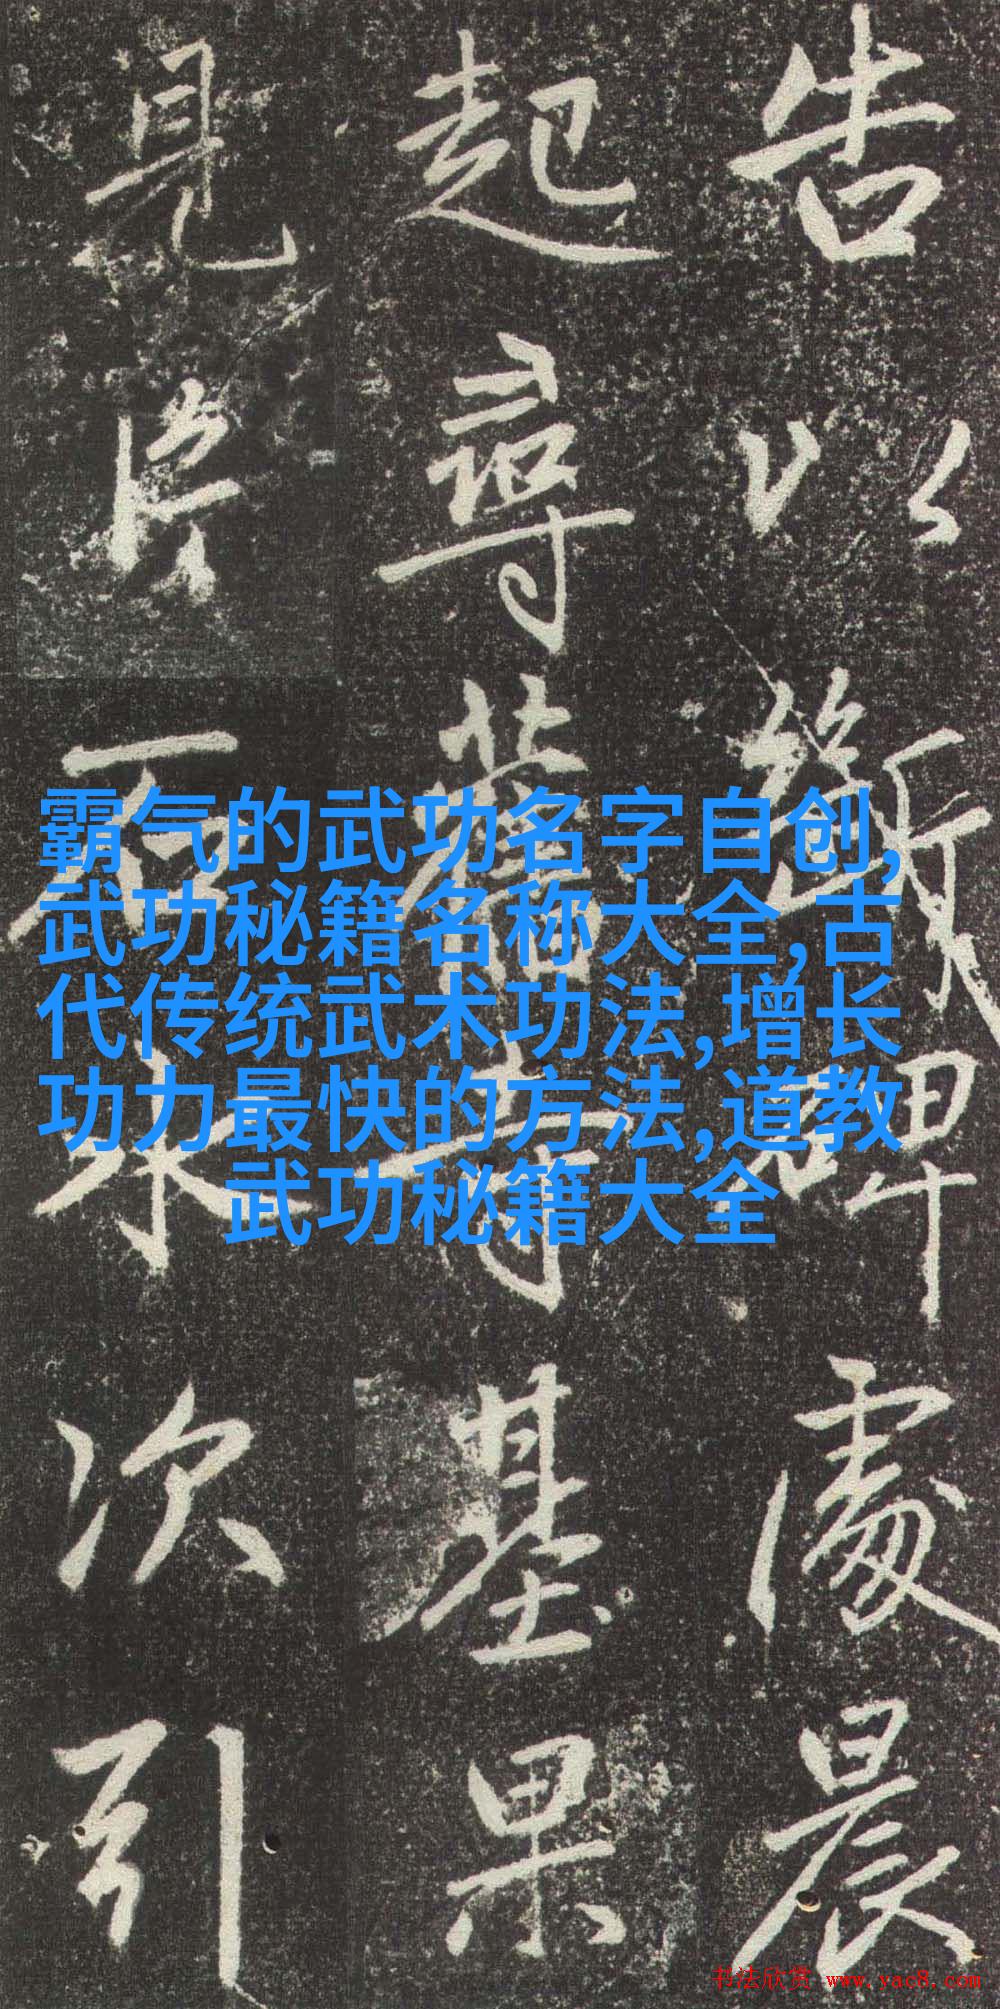 告以斷碑處晨
起尋舊寺基果
見片石来次引
霸气的武功名字自创,
武功秘籍名称大全,古
代传统武术功法,增长
功力最快的方法,道教
武功秘籍大全
书法欣赏 www.yac8.com